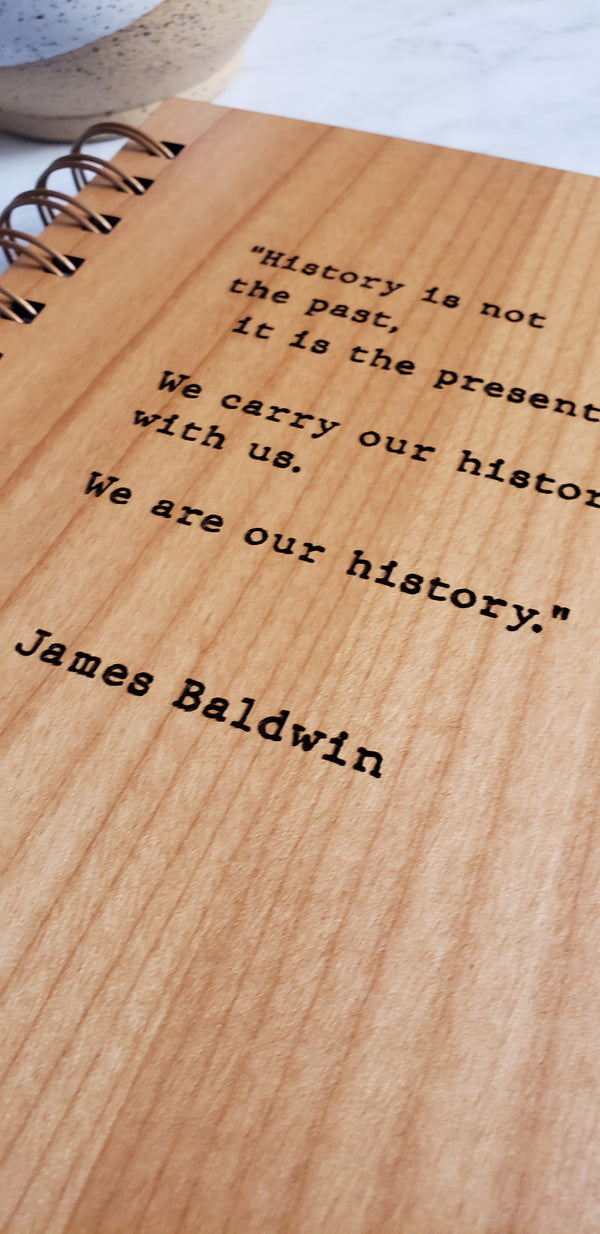 "History is not
the past,
it is the present
We carry our histor
with us.
We are our history."
James Baldwin